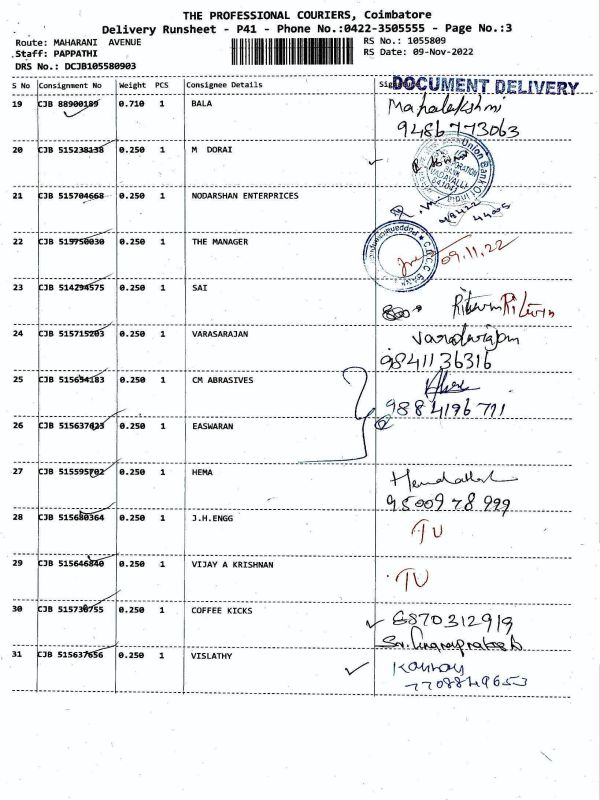 THE PROFESSIONAL COURIERS, Coimbatore
Delivery Runsheet - P41 - Phone No.:0422-3505555 - Page No.:3
Route: MAHARANI AVENUE
RS No.: 1055809
Staff: PAPPATHI
RS Date: 09-Nov-2022
DRS No.: DCJB105580903
DOCUMENT DELIVERY
S No Consignment No Weight PCS Consignee Details
19 CJB 88900189 0.710 1 BALA
9486773063
20 CJB 515238138 0.250 1 M DORAI
Union Bank Of India
21 CJB 515704668 0.250 1 NODARSHAN ENTERPRICES
22 CJB 519750030 0.250 1 THE MANAGER
09.11.22
23 CJB 514294575 0.250 1 SAI
24 CJB 515715203 0.250 1 VARASARAJAN
Varadarajan
9841136316
25 CJB 515654183 0.250 1 CM ABRASIVES
9884196711
26 CJB 515637623 0.250 1 EASWARAN
27 CJB 515595702 0.250 1 HEMA
9500978999
28 CJB 515680364 0.250 1 J.H.ENGG
TU
29 CJB 515646840 0.250 1 VIJAY A KRISHNAN
TU
30 CJB 515730755 0.250 1 COFFEE KICKS
6870312919
31 CJB 515637656 0.250 1 VISLATHY
7708849653